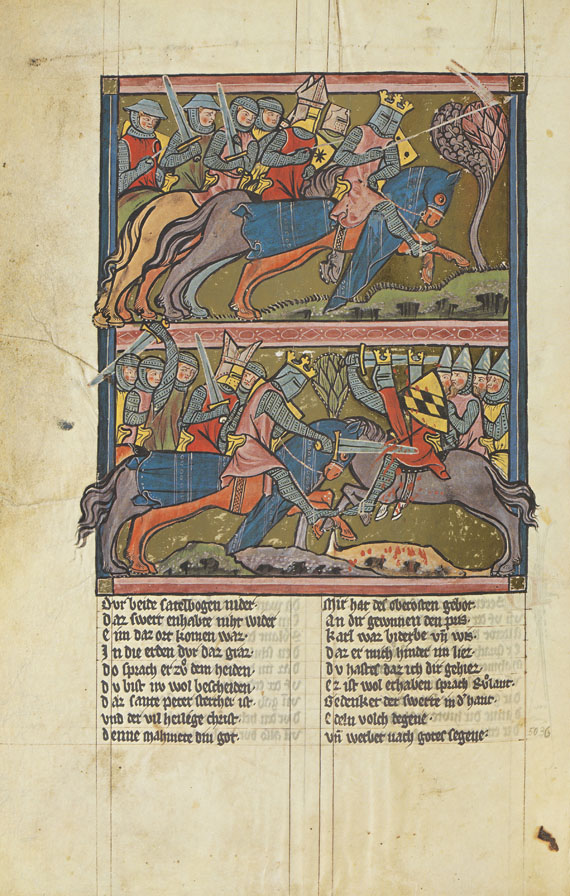 Dvr beide satelbogen nider·
Daz swert enhabte niht wider
E im daz ort komen waz·
In die erden dvr daz graz·
Do sprach er zů dem heiden·
Dv bist nv wol bescheiden·
Daz sante peter stercher ist·
vnd der vil heilege christ·
denne mahmete din got·
Mit haz des oberosten gebot·
An dir gewunnen den pris·
Karl waz biderbe vñ wis·
daz er mich hinder im liez·
Dv hastes daz ich dir gehiez·
ez ist wol erhaben sprach Růlant·
Gedenket der swerte in d'hant·
edeln volch degene·
vñ werbet nach gotes segene·
5036